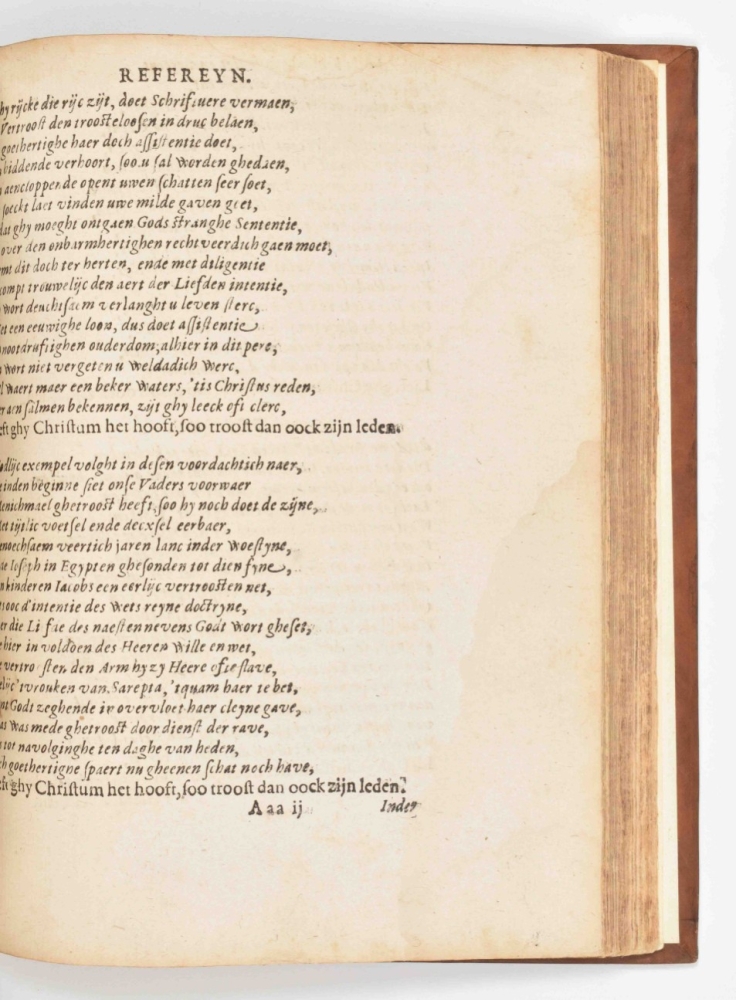 REFEREYN.
hy rijcke die rijc zijt, doet Schriftuere vermaen,
Vertroost den troosteloosen in druc belaen,
goethertighe haer doch assistentie doet,
biddende verhoort, soo u sal worden ghedaen,
aencloppende opent uwen schatten seer soet,
soeckt laet vinden uwe milde gaven goet,
dat ghy moeght ontgaen Gods stranghe Sententie,
over den onbarmhertighen rechtveerdich gaen moet,
emt dit doch ter herten, ende met diligentie
compt trouwelijc den aert der Liefden intentie,
wort deuchtsaem verlanght u leven sterc,
een eeuwighe loon, dus doet assistentie
nootdruftighen ouderdom, alhier in dit perc,
wort niet vergeten u weldadich werc,
waert maer een beker Waters, 'tis Christus reden,
aen salmen bekennen, zijt ghy leeck oft clerc,
eft ghy Christum het hooft, soo troost dan oock zijn leden.
exempel volght in desen voordachtich naer,
inden beginne siet onse Vaders voorwaer
menichmael ghetroost heeft, soo hy noch doet de zijne,
tijtlic voetsel ende decxsel eerbaer,
enoechsaem veertich jaren lanc inder Woestyne,
Ioseph in Egypten ghesonden tot dien fyne,
kinderen Iacobs een eerlijc vertroosten net,
d'intentie des Wets reyne doctryne,
die Liefde des naesten nevens Godt wort gheset,
hier in voldoen des Heeren Wille en wet,
vertroosten den Arm hy zy Heere ofte slave,
'tvrouken van Sarepta, 'tquam haer te bet,
Godt zeghende in overvloet haer cleyne gave,
was mede ghetroost door dienst der rave,
tot navolginghe ten daghe van heden,
goethertighe spaert nu gheenen schat noch have,
eft ghy Christum het hooft, soo troost dan oock zijn leden.
Aaa ij
Inden